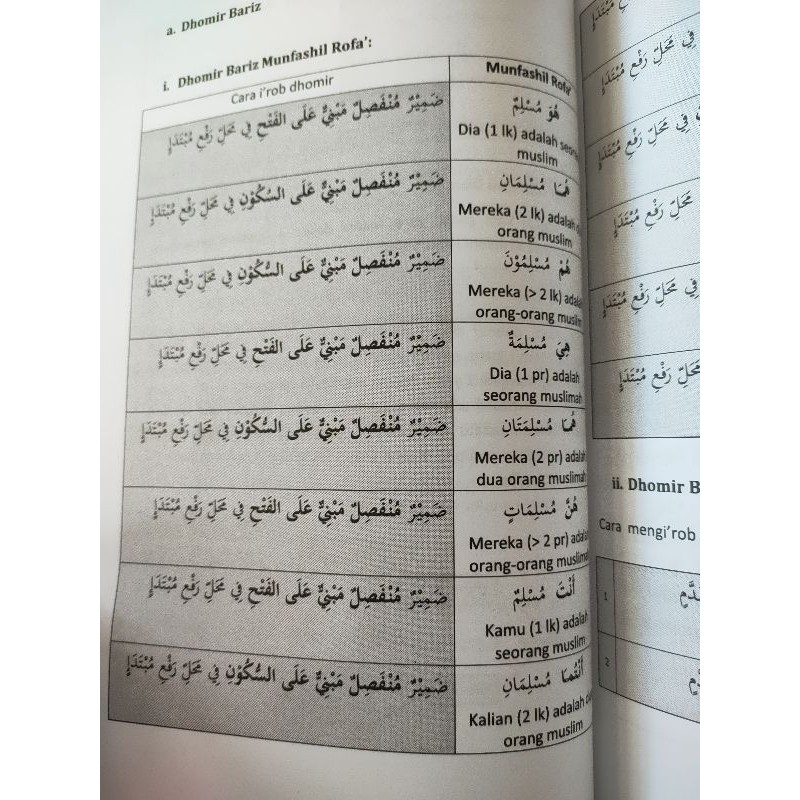 a. Dhomir Bariz
i. Dhomir Bariz Munfashil Rofa':
Munfashil Rofa'
Cara i'rob dhomir
هُوَ مُسْلِمٌ
Dia (1 lk) adalah
muslim
ضَمِيْرٌ مُنْفَصِلٌ مَبْنِيٌّ عَلَى الْفَتْحِ فِي مَحَلِّ رَفْعِ مُبْتَدَإٍ
هُمَا مُسْلِمَانِ
Mereka (2 lk) adalah
orang muslim
ضَمِيْرٌ مُنْفَصِلٌ مَبْنِيٌّ عَلَى السُّكُوْنِ فِي مَحَلِّ رَفْعِ مُبْتَدَإٍ
هُمْ مُسْلِمُوْنَ
Mereka (> 2 lk)
orang-orang muslim
ضَمِيْرٌ مُنْفَصِلٌ مَبْنِيٌّ عَلَى السُّكُوْنِ فِي مَحَلِّ رَفْعِ مُبْتَدَإٍ
هِيَ مُسْلِمَةٌ
Dia (1 pr) adalah
seorang muslimah
ضَمِيْرٌ مُنْفَصِلٌ مَبْنِيٌّ عَلَى الْفَتْحِ فِي مَحَلِّ رَفْعِ مُبْتَدَإٍ
هُمَا مُسْلِمَتَانِ
Mereka (2 pr) adalah
dua orang muslimah
ضَمِيْرٌ مُنْفَصِلٌ مَبْنِيٌّ عَلَى السُّكُوْنِ فِي مَحَلِّ رَفْعِ مُبْتَدَإٍ
هُنَّ مُسْلِمَاتٍ
Mereka (> 2 pr)
orang-orang
ضَمِيْرٌ مُنْفَصِلٌ مَبْنِيٌّ عَلَى الْفَتْحِ فِي مَحَلِّ رَفْعِ مُبْتَدَإٍ
أَنْتَ مُسْلِمٌ
Kamu (1 lk) adalah
seorang muslim
ضَمِيْرٌ مُنْفَصِلٌ مَبْنِيٌّ عَلَى الْفَتْحِ فِي مَحَلِّ رَفْعِ مُبْتَدَإٍ
أَنْتُمَا مُسْلِمَانِ
Kalian (2 lk) adalah
orang muslim
ضَمِيْرٌ مُنْفَصِلٌ مَبْنِيٌّ عَلَى السُّكُوْنِ فِي مَحَلِّ رَفْعِ مُبْتَدَإٍ
فِي مَحَلِّ رَفْعِ مُبْتَدَإٍ
فِي مَحَلِّ رَفْعِ مُبْتَدَإٍ
مَحَلِّ رَفْعِ مُبْتَدَإٍ
مَحَلِّ رَفْعِ مُبْتَدَإٍ
مَحَلِّ رَفْعِ مُبْتَدَإٍ
ii. Dhomir B
Cara mengi'rob
1
2